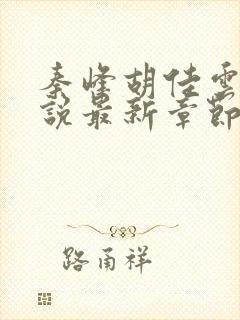 秦峰胡佳雲
説最新章節
路甬祥